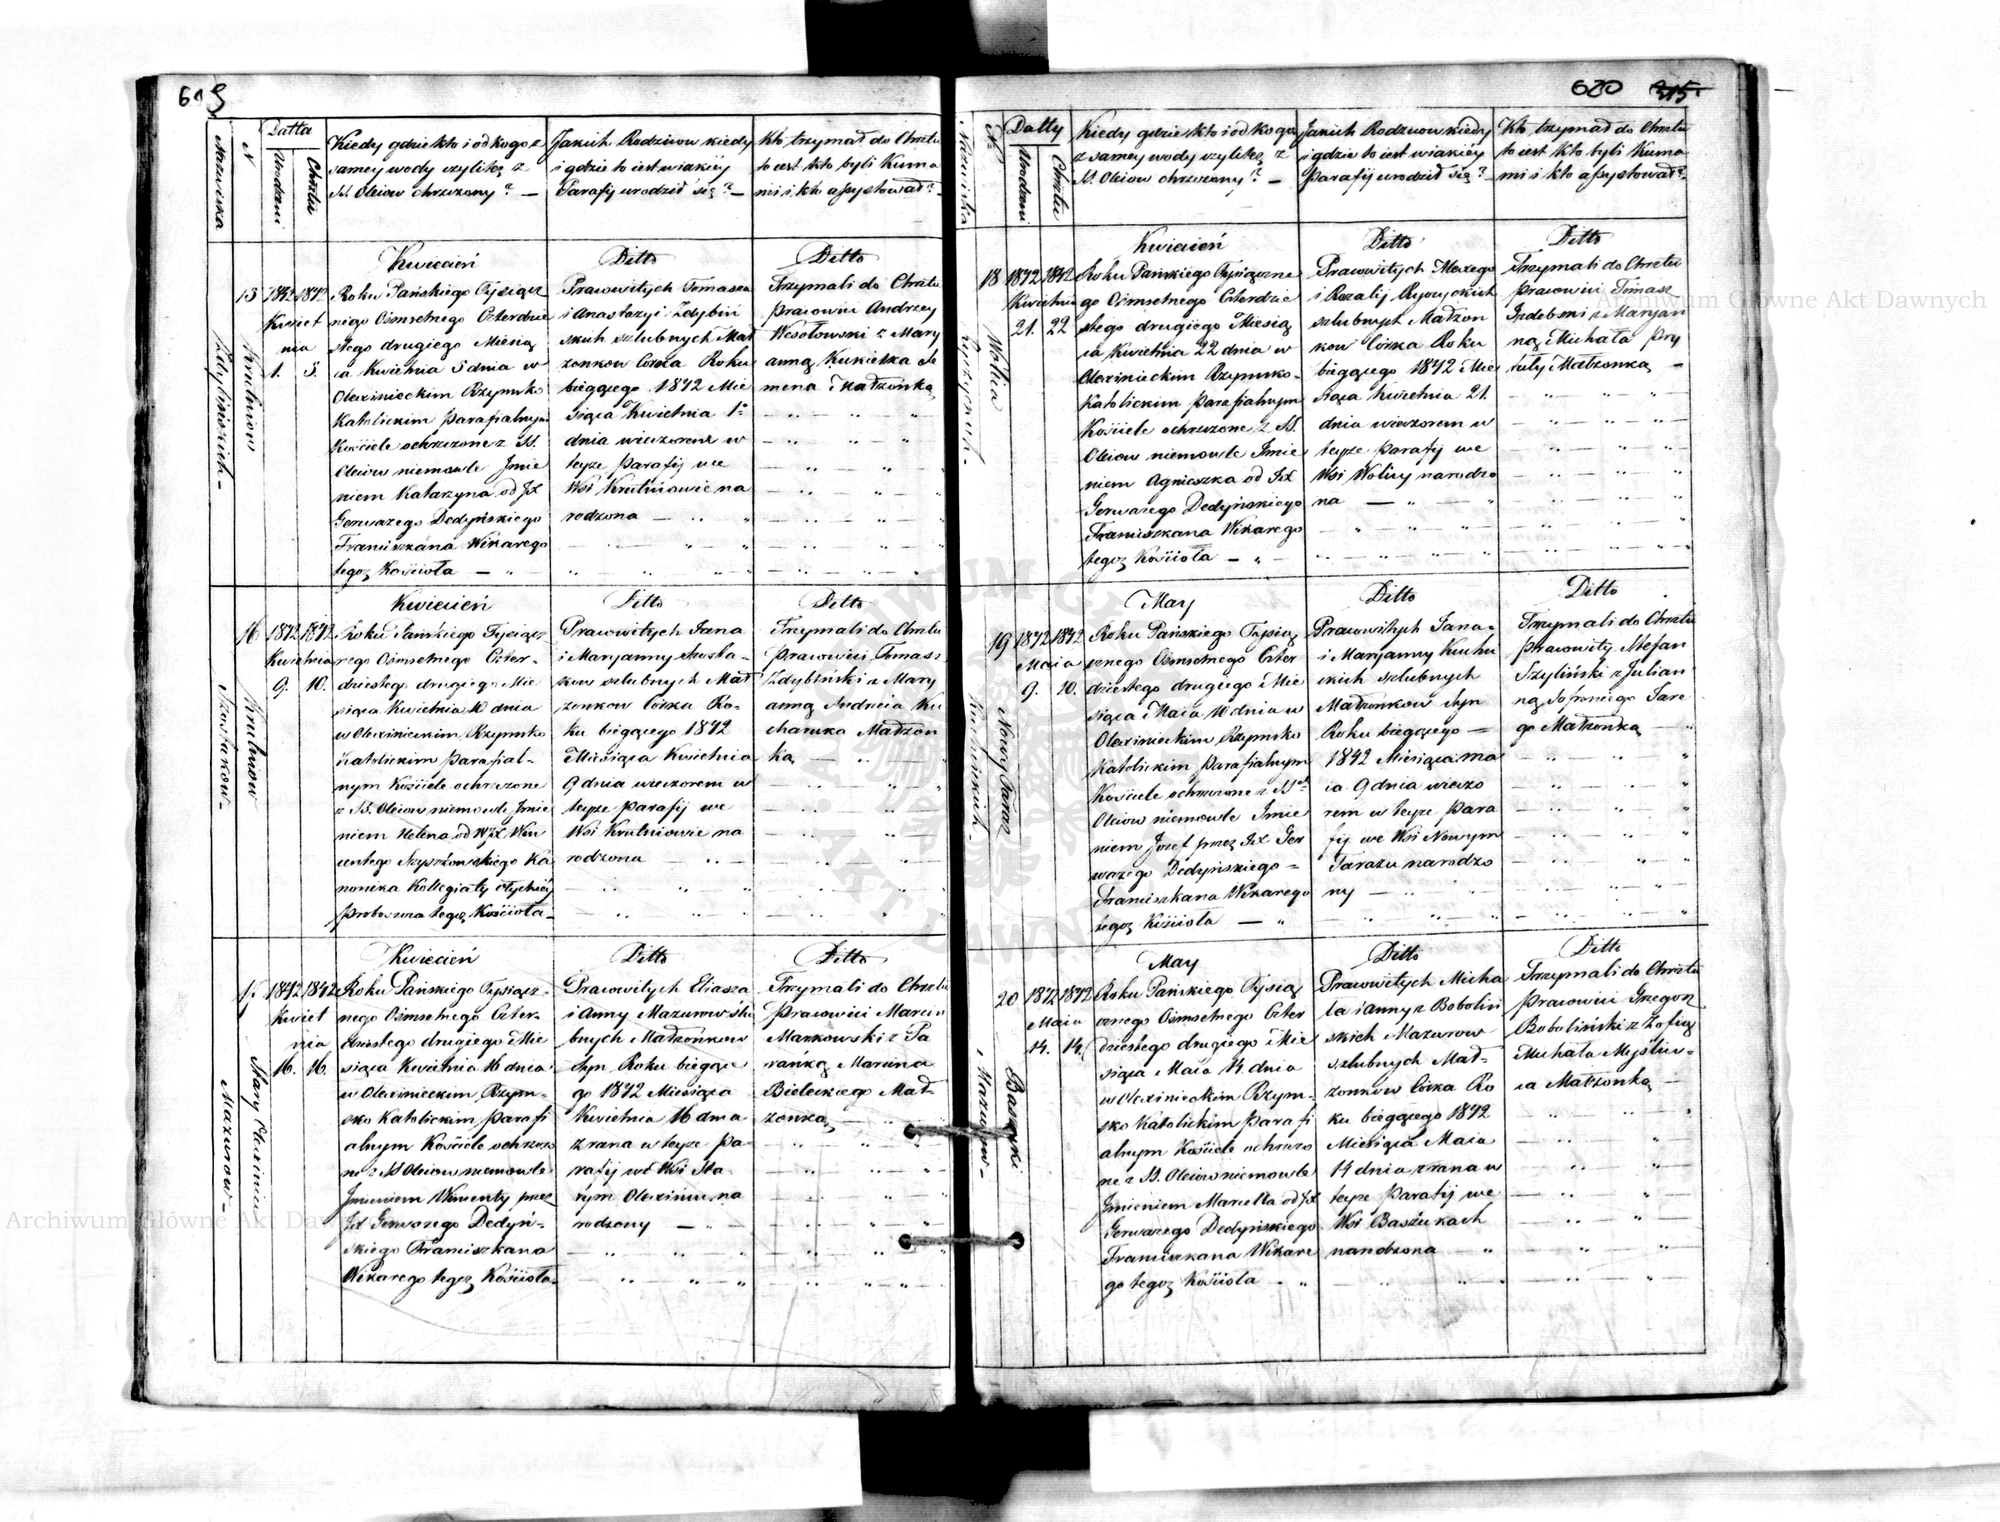 619
Nazwiska
N
Datta
Urodzin
Chrztu
Kiedy gdzie kto i od kogo z
samey wody czyli też z
SS. Oleiow chrzczony? —
Jakich Rodziców kiedy
i gdzie to iest w iakiéy
Parafij urodził się? —
Kto trzymał do Chrztu
to iest kto byli Kuma
mi i kto assystował? —
Kwiecień
Ditto
Ditto
Zdybińskich -
Krutniow
15
1842 1842
Kwiet
nia
1. 5.
Roku Pańskiego Tysiącz
nego Ośmsetnego Czterdzie
stego drugiego Miesią
ca Kwietnia 5 dnia w
Olexinieckim Rzymsko
Katolickim Parafialnym
Kościele ochrzczone z SS.
Oleiow niemowle Jmie
niem Katarzyna od JX
Gerwazego Dedyńskiego
Franciszkana Wikarego
tegoż Kościoła — „
Prawowitych Tomasza
i Anastazyi Zdybiń
skich szlubnych Mał
żonkow Córka Roku
bieżącego 1842 Mie
siąca Kwietnia 1°
dnia wieczorem w
teyże Parafij we
Wsi Krutniowie na
rodzona —
Trzymali do Chrztu
Pracowici Andrzey
Wesołowski z Mary
anną Kukiełka Se
mena Małżonką
Kwiecień
Ditto
Ditto
Szostakow -
Krutniow
16
1842 1842
Kwietnia
9. 10.
Roku Pańskiego Tysiącz
nego Ośmsetnego Czter-
dziesteg drugiego Mie
siąca Kwietnia 10 dnia
w Olexinieckim Rzymsko
Katolickim Parafial-
nym Kościele ochrzczone
z SS. Oleiow niemowle Jmie
niem Helena od WJX Win
centego Szyszkowskiego Ka
nonika Kollegiaty Ołyckiéy
Proboszcza tegoż Kościoła -
Prawowitych Jana
i Maryanny Szosta-
kow szlubnych Mał
żonkow Córka Ro-
ku bieżącego 1842
Miesiąca Kwietnia
9 dnia wieczorem w
teyże Parafij we
Wsi Krutniowie na
rodzona —
Trzymali do Chrztu
Pracowici Tomasz
Zdybiński z Mary
anną Andrzeia Ku
charuka Małżon
ką —
Kwiecień
Ditto
Ditto
Mazurow -
Stary Olexiniec
17
1842 1842
Kwiet
nia
16. 16.
Roku Pańskiego Tysiącz-
nego Ośmsetnego Czter-
dziestego drugiego Mie
siąca Kwietnia 16 dnia
w Olexinieckim Rzym-
sko Katolickim Parafi
alnym Kościele ochrzczo
ne z SS Oleiow niemowle
Jmieniem Wincenty przez
JX Gerwazego Dedyń-
skiego Franciszkana
Wikarego tegoż Kościoła -
Prawowitych Eliasza
i Anny Mazurow szlu
bnych Małżonkow
Syn Roku bieżące
go 1842 Miesiąca
Kwietnia 16 dnia
z rana w teyże Pa-
rafij we Wsi Sta-
rym Olexińcu na
rodzony —
Trzymali do Chrztu
Pracowici Marcin
Markowski z Pa
rańką Marcina
Bieleckiego Mał
żonką —
620 315.
Nazwiska
Datty
Urodzin
Chrztu
Kiedy gdzie kto i od kogo
z samey wody czyli też z
SS. Oleiow chrzczony? —
Jakich Rodziców kiedy
i gdzie to iest w iakiéy
Parafij urodził się? —
Kto trzymał do Chrztu
to iest kto byli Kuma
mi i kto assystował? -
Kwiecień
Ditto
Ditto
Wolica
18
1842 1842
Kwietnia
21. 22
Roku Pańskiego Tysiączne
go Ośmsetnego Czterdzie
stego drugiego Miesią
ca Kwietnia 22 dnia w
Olexinieckim Rzymsko-
Katolickim Parafialnym
Kościele ochrzczone z SS.
Oleiow niemowle Jmie
niem Agnieszka od JX
Gerwazego Dedyńskiego
Franciszkana Wikarego
tegoż Kościoła — „ —
Prawowitych Macieja
i Rozalij
szlubnych Małżon
kow Córka Roku
bieżącego 1842 Mie
siąca Kwietnia 21.
dnia wieczorem w
teyże Parafij we
Wsi Wolicy narodzo
na —
Trzymali do Chrztu
Pracowici Tomasz
Izdebski z Maryan
ną Michała Pry
tuły Małżonką —
May
Ditto
Ditto
Kucharskich -
Nowy Taraz
19
1842 1842
Maia
9. 10.
Roku Pańskiego Tysią
cznego Ośmsetnego Czter
dziestego drugiego Mie
siąca Maia 10 dnia w
Olexinieckim Rzymsko
Katolickim Parafialnym
Kościele ochrzczone z SS
Oleiow niemowle Jmie
niem Jozef przez JX Ger
wazego Dedyńskiego -
Franciszkana Wikarego
tegoż Kościoła — „
Prawowitych Jana-
i Maryanny Kuchar
skich szlubnych
Małżonkow Syn
Roku bieżącego —
1842 Miesiąca Ma
ia 9 dnia wieczo
rem w teyże Para
fij we Wsi Nowym
Tarazu narodzo
ny —
Trzymali do Chrztu
Pracowity Stefan
Szyliński z Julian
ną Tare
go Małżonką —
May
Ditto
Ditto
Mazurow -
Baszuki
20
1842 1842
Maia
14. 14.
Roku Pańskiego Tysią
cznego Ośmsetnego Czter
dziestego drugiego Mie
siąca Maia 14 dnia
w Olexinieckim Rzym-
sko Katolickim Parafi
alnym Kościele ochrzczo
ne z SS. Oleiow niemowle
Jmieniem Maryella od JX
Gerwazego Dedyńskiego
Franciszkana Wikare
go tegoż Kościoła — „
Prawowitych Micha
ła i Anny z Boboliń
skich Mazurow
szlubnych Mał-
żonkow Córka Ro
ku bieżącego 1842
Miesiąca Maia
14 dnia z rana w
teyże Parafij we
Wsi Baszukach
narodzona „
Trzymali do Chrztu
Pracowici Grzegorz
Boboliński z Zofią
Michała Myśliw-
ca Małżonką —
Archiwum Główne Akt Dawnych
Archiwum Główne Akt Dawnych